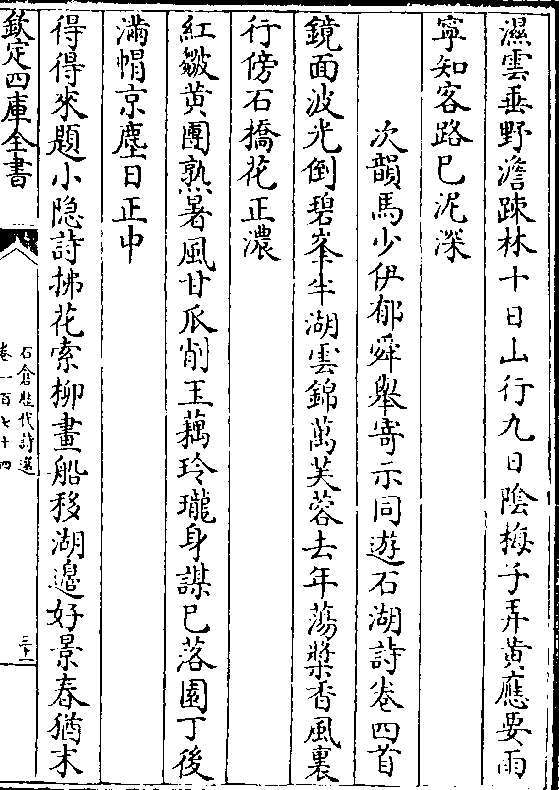 濕雲垂野澹疎林十日山行九日陰梅子弄黄應要雨
寧知客路巳泥深
次韻馬少伊郁舜舉寄示同遊石湖詩卷四首
鏡面波光倒碧峯半湖雲錦萬芙蓉去年蕩槳香風裏
行傍石橋花正濃
紅皺黄團熟暑風甘瓜削玉藕玲瓏身謀巳落園丁後
滿帽京塵日正中
得得來題小隠詩拂花索柳畫船移湖邉好景春猶未
欽定四庫全書
石倉歴代詩選
卷一百七十四